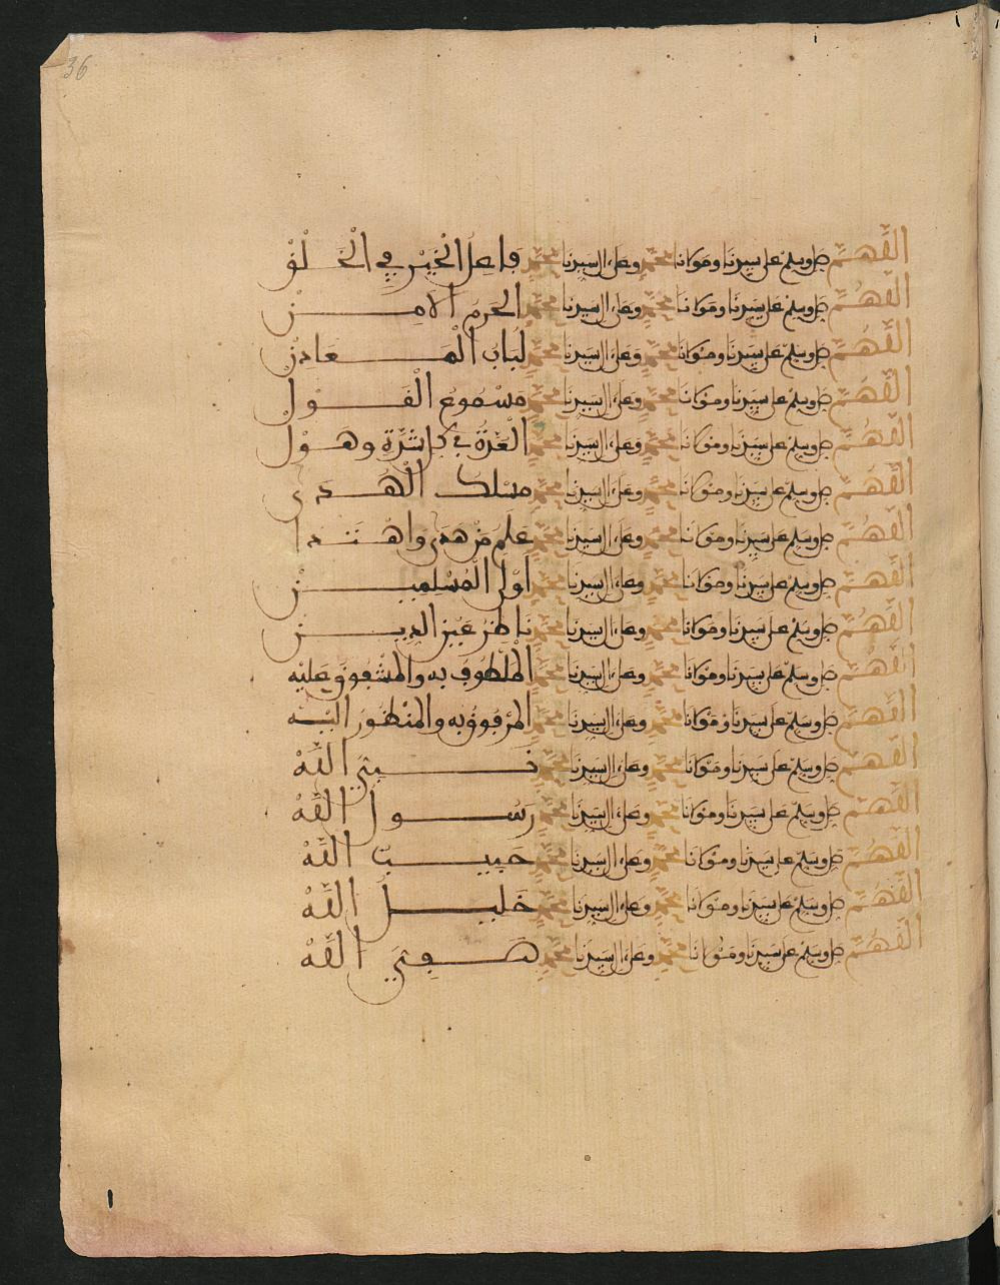 36
اللَّهُمَّ صل وسلم على سيدنا ومولانا محمد وعلى ال سيدنا محمد فاعل الخير في الخلق
اللَّهُمَّ صل وسلم على سيدنا ومولانا محمد وعلى ال سيدنا محمد الحرم الامن
اللَّهُمَّ صل وسلم على سيدنا ومولانا محمد وعلى ال سيدنا محمد لباب المعادن
اللَّهُمَّ صل وسلم على سيدنا ومولانا محمد وعلى ال سيدنا محمد مسموع القول
اللَّهُمَّ صل وسلم على سيدنا ومولانا محمد وعلى ال سيدنا محمد العدة في كل شدة وهول
اللَّهُمَّ صل وسلم على سيدنا ومولانا محمد وعلى ال سيدنا محمد مسلك الهدى
اللَّهُمَّ صل وسلم على سيدنا ومولانا محمد وعلى ال سيدنا محمد علم من هدى واهتدا
اللَّهُمَّ صل وسلم على سيدنا ومولانا محمد وعلى ال سيدنا محمد اول المسلمين
اللَّهُمَّ صل وسلم على سيدنا ومولانا محمد وعلى ال سيدنا محمد ناظر عين الدين
اللَّهُمَّ صل وسلم على سيدنا ومولانا محمد وعلى ال سيدنا محمد الملطوف به والمشفوق عليه
اللَّهُمَّ صل وسلم على سيدنا ومولانا محمد وعلى ال سيدنا محمد المرفوق به والمنظور اليه
اللَّهُمَّ صل وسلم على سيدنا ومولانا محمد وعلى ال سيدنا محمد نبي الله
اللَّهُمَّ صل وسلم على سيدنا ومولانا محمد وعلى ال سيدنا محمد رسول الله
اللَّهُمَّ صل وسلم على سيدنا ومولانا محمد وعلى ال سيدنا محمد حبيب الله
اللَّهُمَّ صل وسلم على سيدنا ومولانا محمد وعلى ال سيدنا محمد خليل الله
اللَّهُمَّ صل وسلم على سيدنا ومولانا محمد وعلى ال سيدنا محمد صفي الله